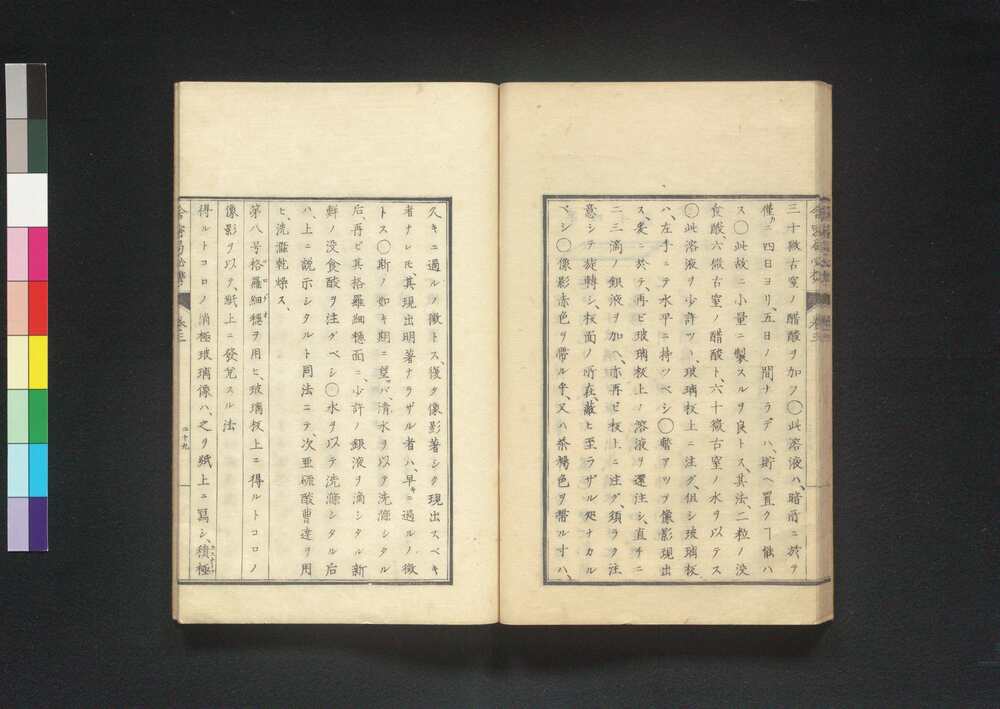 三十微古室ノ醋酸ヲ加フ◯此溶液ハ、暗所ニ於テ
僅カニ四日ヨリ、五日ノ間ナラデハ、貯ヘ置クヿ能ハ
ス◯此故ニ小量ニ製スルヲ良トス、其法、二粒ノ没
食酸六微古室ノ醋酸ト、六十微古室ノ水ヲ以テス
◯此溶液ヲ少許ツヽ、玻璃板上ニ注グ、但シ玻璃板
ハ、左手ニテ水平ニ持ツベシ◯暫アツテ像影現出
ス、爰ニ於テ、再ビ玻璃板上ノ溶液ヲ還注シ、直チニ
二三滴ノ銀液ヲ加ヘ、亦再ビ板上ニ注グ、須ラク注
意シテ旋轉シ、板面ノ所在、蔽ヒ至ラザル処ナカル
ベシ◯像影赤色ヲ帶ル乎、又ハ茶褐色ヲ帶ル寸ハ、
久キニ過ルノ徴トス、復タ像影著シク現出スベキ
者ナレ𪜈、其現出明著ナラザル者ハ、早キニ過ルノ徴
トス◯斯ノ如キ期ニ望メバ、清水ヲ以テ洗滌シタル
后、再ビ其格羅細穏面ニ、少許ノ銀液ヲ滴シタル新
鮮ノ没食酸ヲ注グベシ◯水ヲ以テ洗滌シタル后
ハ、上ニ説示シタルト同法ニテ、次亜硫酸曹達ヲ用
ヒ、洗滌乾燥ス、
第八号格羅細穏ヲ用ヒ、玻璃板上ニ得ルトコロノ
像影ヲ以テ、紙上ニ發免スル法
得ルトコロノ消極玻璃像ハ、之ヲ紙上ニ寫シ、積極
卷三
二十九